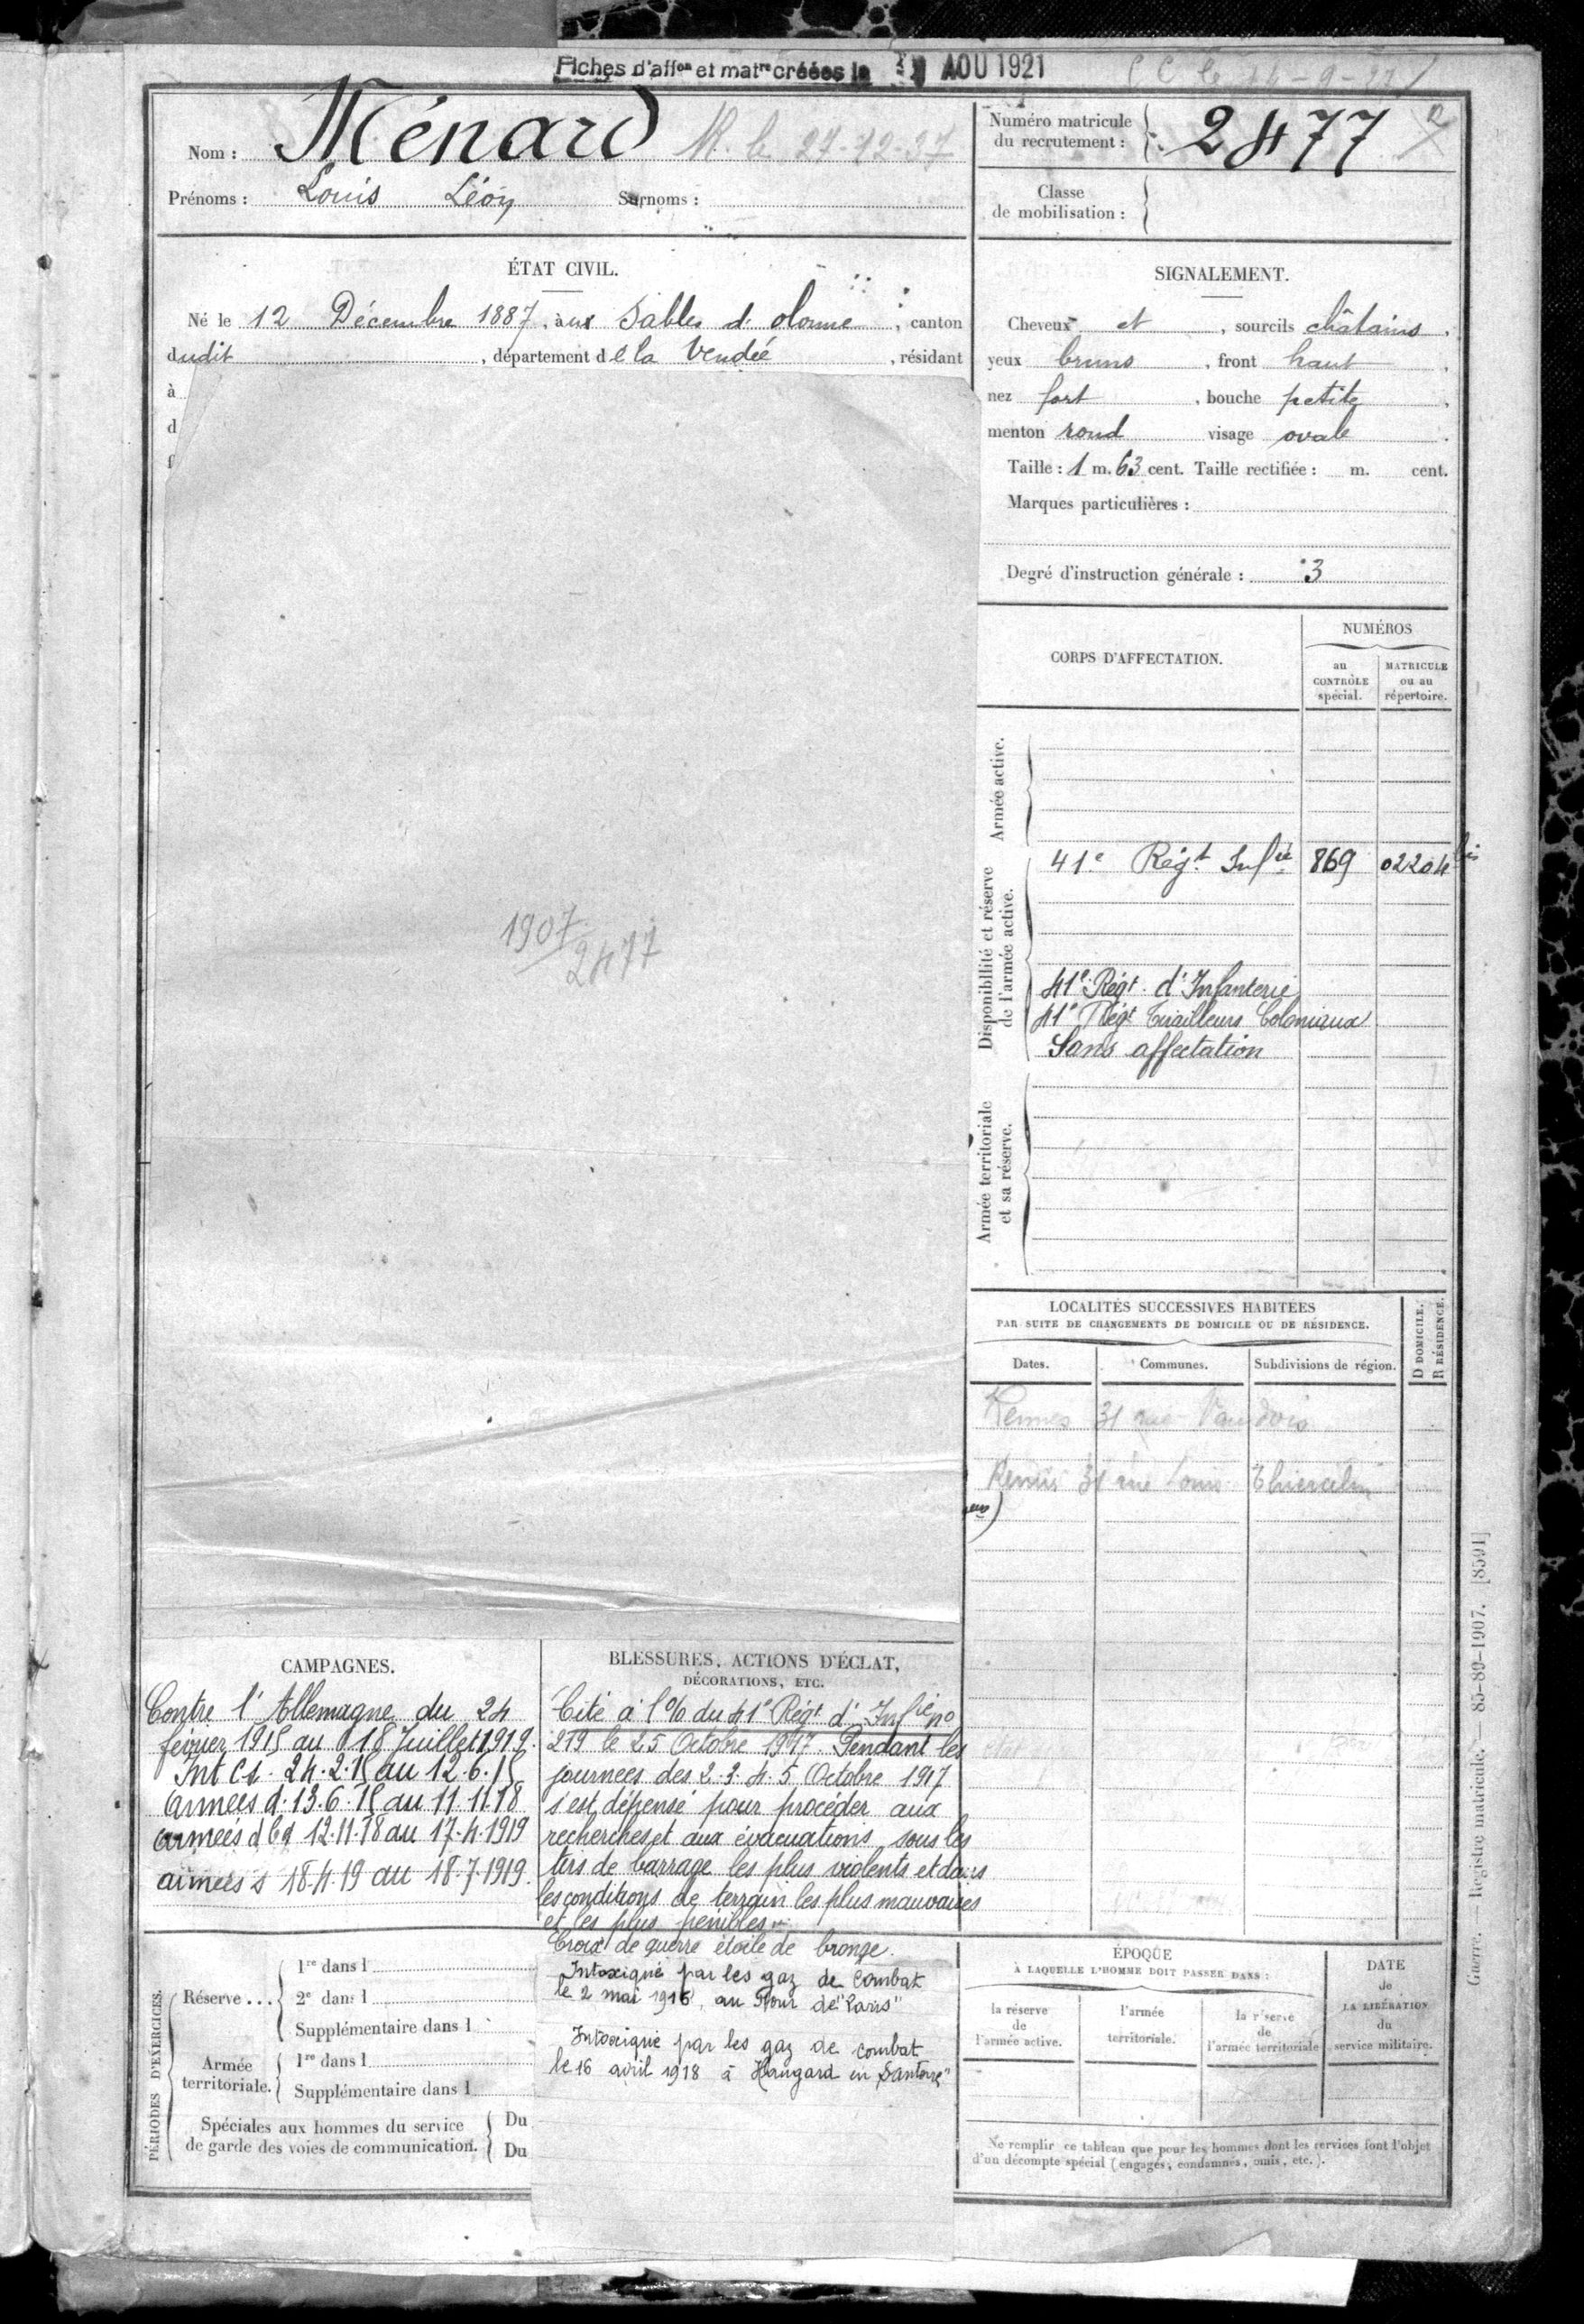 Fiches d'aff^on et mat^re créées le AOU 1921
Nom : Ménard
Prénoms : Louis Léon Surnoms :
Numéro matricule
du recrutement : 2477
Classe
de mobilisation :
ÉTAT CIVIL.
Né le 12 Décembre 1887, aux Sables d'olonne, canton
dudit, département de la Vendée, résidant
à
d
f
1907
2477
SIGNALEMENT.
Cheveux et, sourcils châtains,
yeux bruns, front haut,
nez fort, bouche petite,
menton rond visage ovale.
Taille : 1 m. 63 cent. Taille rectifiée : m. cent.
Marques particulières :
Degré d'instruction générale : 3
CORPS D'AFFECTATION.
NUMÉROS
au
CONTRÔLE
spécial.
MATRICULE
ou au
répertoire.
Armée active.
Disponibilité et réserve
de l'armée active.
41e Régt. Infie 869 02204 bis
41e Régt. d'Infanterie
41e Régt Tirailleurs Coloniaux
Sans affectation
Armée territoriale
et sa réserve.
LOCALITÉS SUCCESSIVES HABITÉES
PAR SUITE DE CHANGEMENTS DE DOMICILE OU DE RÉSIDENCE.
Dates. Communes. Subdivisions de région.
D DOMICILE.
R RÉSIDENCE.
Rennes 31 rue
Rennes 31 rue Louis Thiercelin
CAMPAGNES.
Contre l'Allemagne du 24
février 1915 au 18 Juillet 1919.
Int C1. 24.2.15 au 12.6.15
Armées d. 13.6.15 au 11.11.18
armées d Cd 12.11.18 au 17.4.1919
armées s 18.4.19 au 18.7.1919.
BLESSURES, ACTIONS D'ÉCLAT,
DÉCORATIONS, ETC.
Cité à l'% du 41e Régt d'Infie no
219 le 25 Octobre 1917. Pendant les
journées des 2.3.4.5 Octobre 1917
s'est dépensé pour procéder aux
recherches et aux évacuations sous les
tirs de barrage les plus violents et dans
les conditions de terrain les plus mauvaises
et les plus pénibles
Croix de guerre étoile de bronze.
Intoxiqué par les gaz de combat
le 2 mai 1916, au Four de "Paris"
Intoxiqué par les gaz de combat
le 16 avril 1918 à Hangard en Santerre"
PÉRIODES D'EXERCICES.
Réserve...
1re dans l
2e dans l
Supplémentaire dans l
Armée
territoriale.
1re dans l
Supplémentaire dans l
Spéciales aux hommes du service
de garde des voies de communication.
Du
Du
ÉPOQUE
À LAQUELLE L'HOMME DOIT PASSER DANS :
la réserve
de
l'armée active.
l'armée
territoriale.
la réserve
de
l'armée territoriale
DATE
de
LA LIBÉRATION
du
service militaire.
Ne remplir ce tableau que pour les hommes dont les services font l'objet
d'un décompte spécial (engagés, condamnés, omis, etc.).
Guerre. — Registre matricule. — 85-89-1907. [8591]